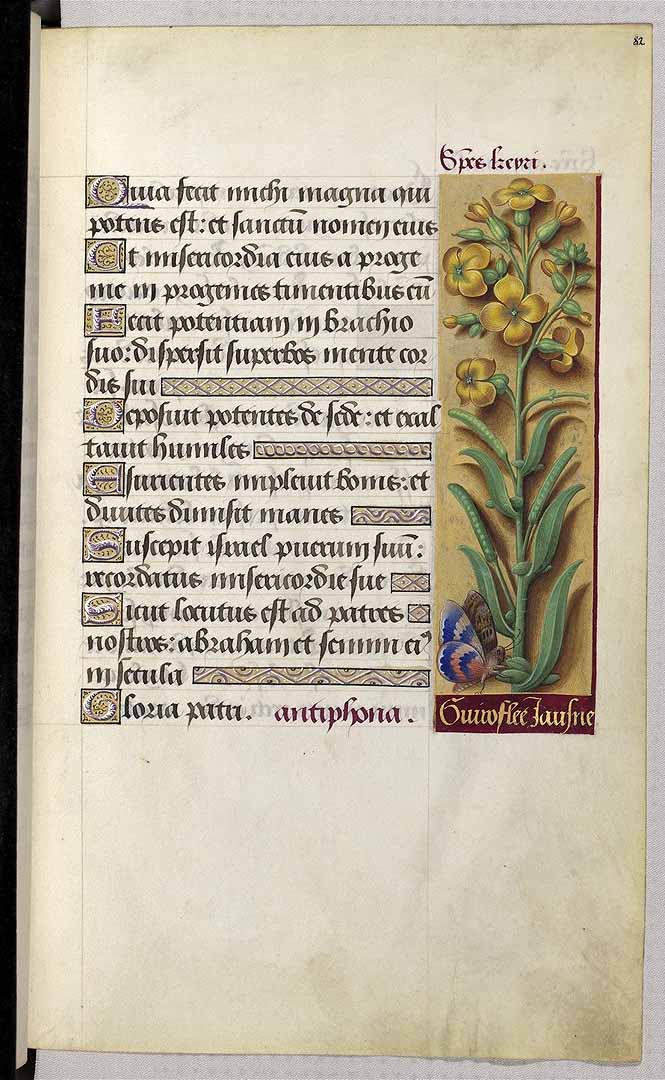 82
Sp̄es keyri.
Quia fecit michi magna qui
potens est: et sanctū nomen eius
Et misericordia eius a proge
nie in progenies timentibus eū
Fecit potentiam in brachio
suo: dispersit superbos mente cor
dis sui
Deposuit potentes de sede: et exal
tavit humiles
Esurientes implevit bonis: et
divites dimisit inanes
Suscepit israel puerum suū:
recordatus misericordie sue
Sicut locutus est ad patres
nostros: abraham et semini eiꝰ
in secula
Gloria patri. antiphona.
Guiroflee Jausne